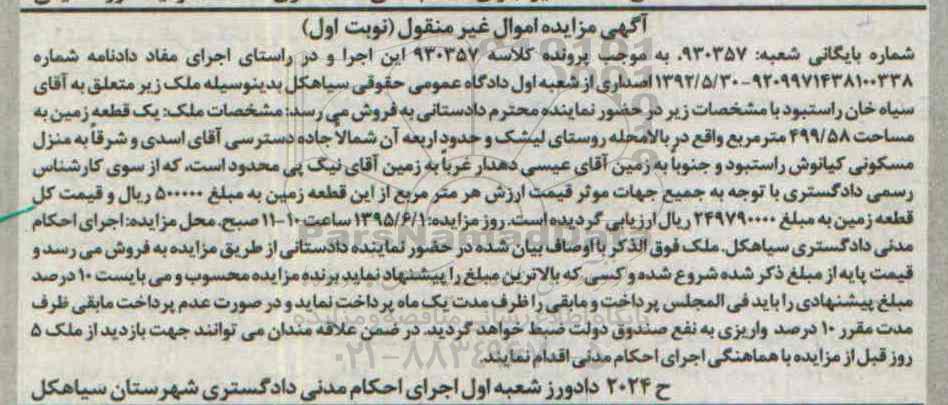 آگهی مزایده اموال غیر منقول (نوبت اول)
شماره بایگانی شعبه: ۹۳۰۳۵۷. به موجب پرونده کلاسه ۹۳۰۳۵۷ این اجرا و در راستای اجرای مفاد دادنامه شماره
۹۲۰۹۹۷۱۴۳۸۱۰۰۳۳۸-۱۳۹۲/۵/۳۰ اصداری از شعبه اول دادگاه عمومی حقوقی سیاهکل بدینوسیله ملک زیر متعلق به آقای
سیاه خان راستبود با مشخصات زیر در حضور نماینده محترم دادستانی به فروش می رسد: مشخصات ملک: یک قطعه زمین به
مساحت ۴۹۹/۵۸ مترمربع واقع در بالامحله روستای لیشک و حدود اربعه آن شمالاً جاده دسترسی آقای اسدی و شرقاً به منزل
مسکونی کیانوش راستبود و جنوباً به زمین آقای عیسی دهدار غرباً به زمین آقای نیک پی محدود است، که از سوی کارشناس
رسمی دادگستری با توجه به جمیع جهات موثر قیمت ارزش هر متر مربع از این قطعه زمین به مبلغ ۵۰۰۰۰۰ ریال و قیمت کل
قطعه زمین به مبلغ ۲۴۹۷۹۰۰۰۰ ریال ارزیابی گردیده است. روز مزایده: ۱۳۹۵/۶/۱ ساعت ۱۰-۱۱ صبح. محل مزایده: اجرای احکام
مدنی دادگستری سیاهکل. ملک فوق الذکر با اوصاف بیان شده در حضور نماینده دادستانی از طریق مزایده به فروش می رسد و
قیمت پایه از مبلغ ذکر شده شروع شده و کسی که بالاترین مبلغ را پیشنهاد نماید برنده مزایده محسوب و می بایست ۱۰ درصد
مبلغ پیشنهادی را باید فی المجلس پرداخت و مابقی را ظرف مدت یک ماه پرداخت نماید و در صورت عدم پرداخت مابقی ظرف
مدت مقرر ۱۰ درصد واریزی به نفع صندوق دولت ضبط خواهد گردید. در ضمن علاقه مندان می توانند جهت بازدید از ملک ۵
روز قبل از مزایده با هماهنگی اجرای احکام مدنی اقدام نمایند.
ح ۲۰۲۴ دادورز شعبه اول اجرای احکام مدنی دادگستری شهرستان سیاهکل